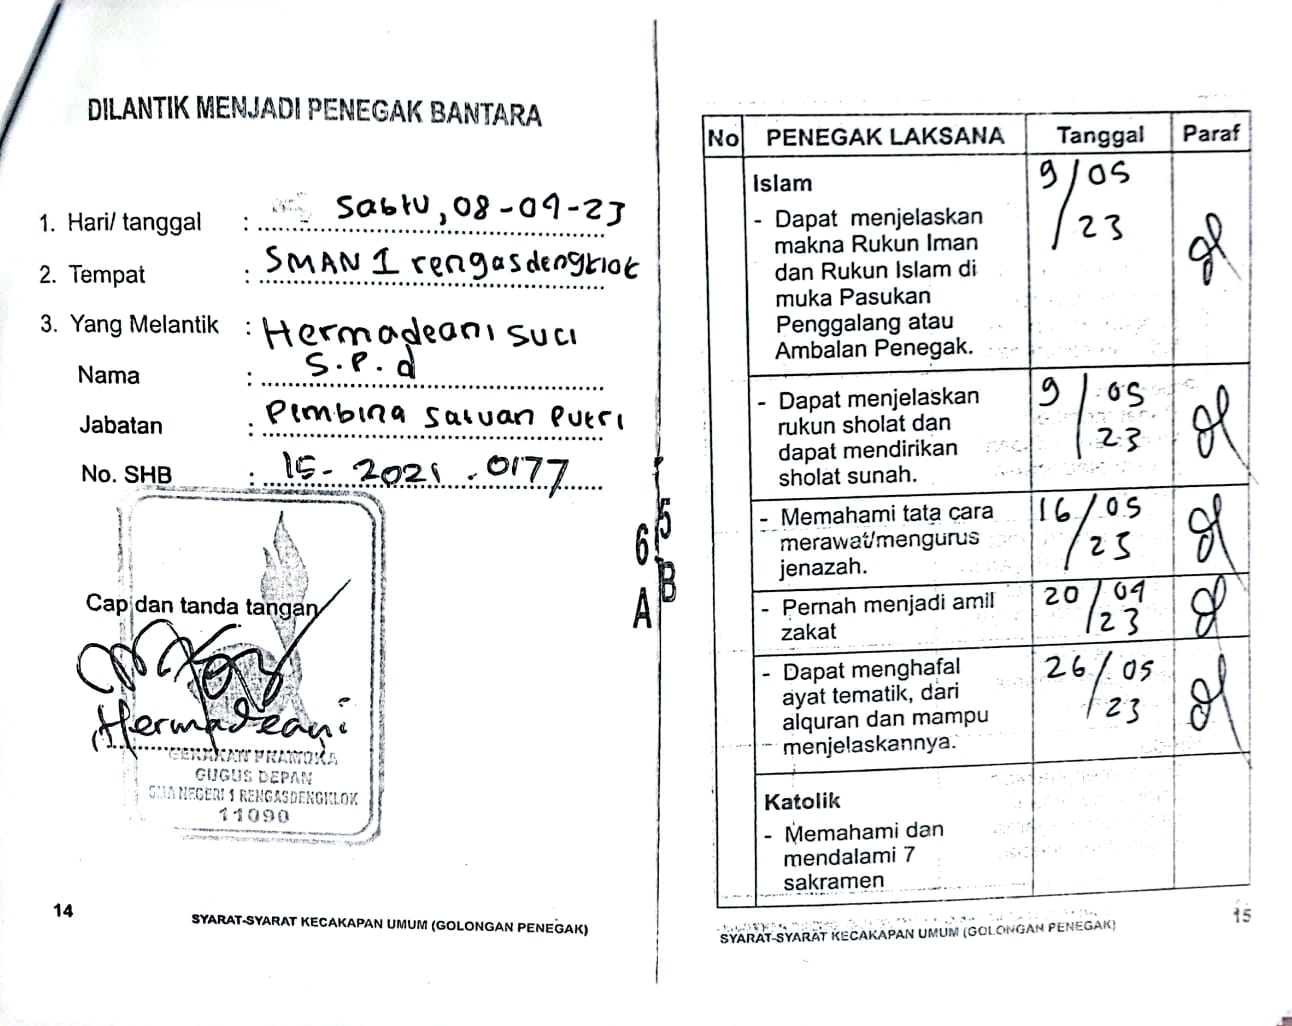 DILANTIK MENJADI PENEGAK BANTARA
1. Hari/ tanggal : Sabtu, 08-04-23
2. Tempat : SMAN 1 rengasdengklok
3. Yang Melantik : Hermadeani suci
S.P.d
Nama :
Jabatan : Pembina Satuan Putri
No. SHB : 15-2021.0177
Cap dan tanda tangan
Hermadeani
GERAKAN PRAMUKA
GUGUS DEPAN
SMA NEGERI 1 RENGASDENGKLOK
11090
14
SYARAT-SYARAT KECAKAPAN UMUM (GOLONGAN PENEGAK)
65
AB
No PENEGAK LAKSANA Tanggal Paraf
Islam 9/05
- Dapat menjelaskan 23
makna Rukun Iman
dan Rukun Islam di
muka Pasukan
Penggalang atau
Ambalan Penegak.
- Dapat menjelaskan 9/05
rukun sholat dan 23
dapat mendirikan
sholat sunah.
- Memahami tata cara 16/05
merawat/mengurus 23
jenazah.
- Pernah menjadi amil 20/04
zakat 23
- Dapat menghafal 26/05
ayat tematik, dari 23
alquran dan mampu
menjelaskannya.
Katolik
- Memahami dan
mendalami 7
sakramen
15
SYARAT-SYARAT KECAKAPAN UMUM (GOLONGAN PENEGAK)